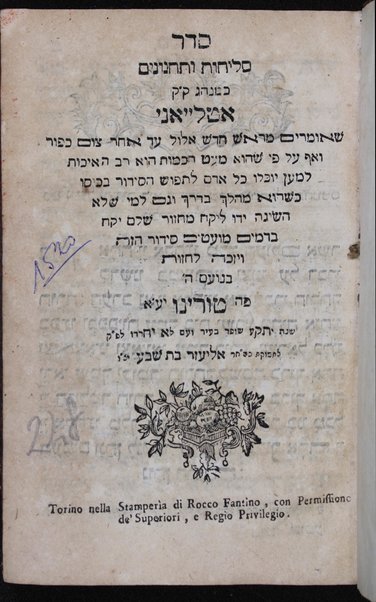 סדר
סליחות ותחנונים
כמנהג ק״ק
אטלייאני
שאומרים מראש חדש אלול עד אחר צום כפור
ואף על פי שהוא מעט הכמות הוא רב האיכות
למען יוכלו כל אדם לתפוש הסידור בכיסו
כשהוא מהלך בדרך וגם למי שלא
השיגה ידו ליקח מחזור שלם יקח
בדמים מועטים סידור הזה
ויזכה לחזות
בנועם ה׳
פה טורינו יע״א
שנת יתקע שופר בעיר ועם לא יחרדו לפ״ק
אליעזר בת שבע
1520
228
Torino nella Stamperia di Rocco Fantino, con Permissione
de' Superiori, e Regio Privilegio.